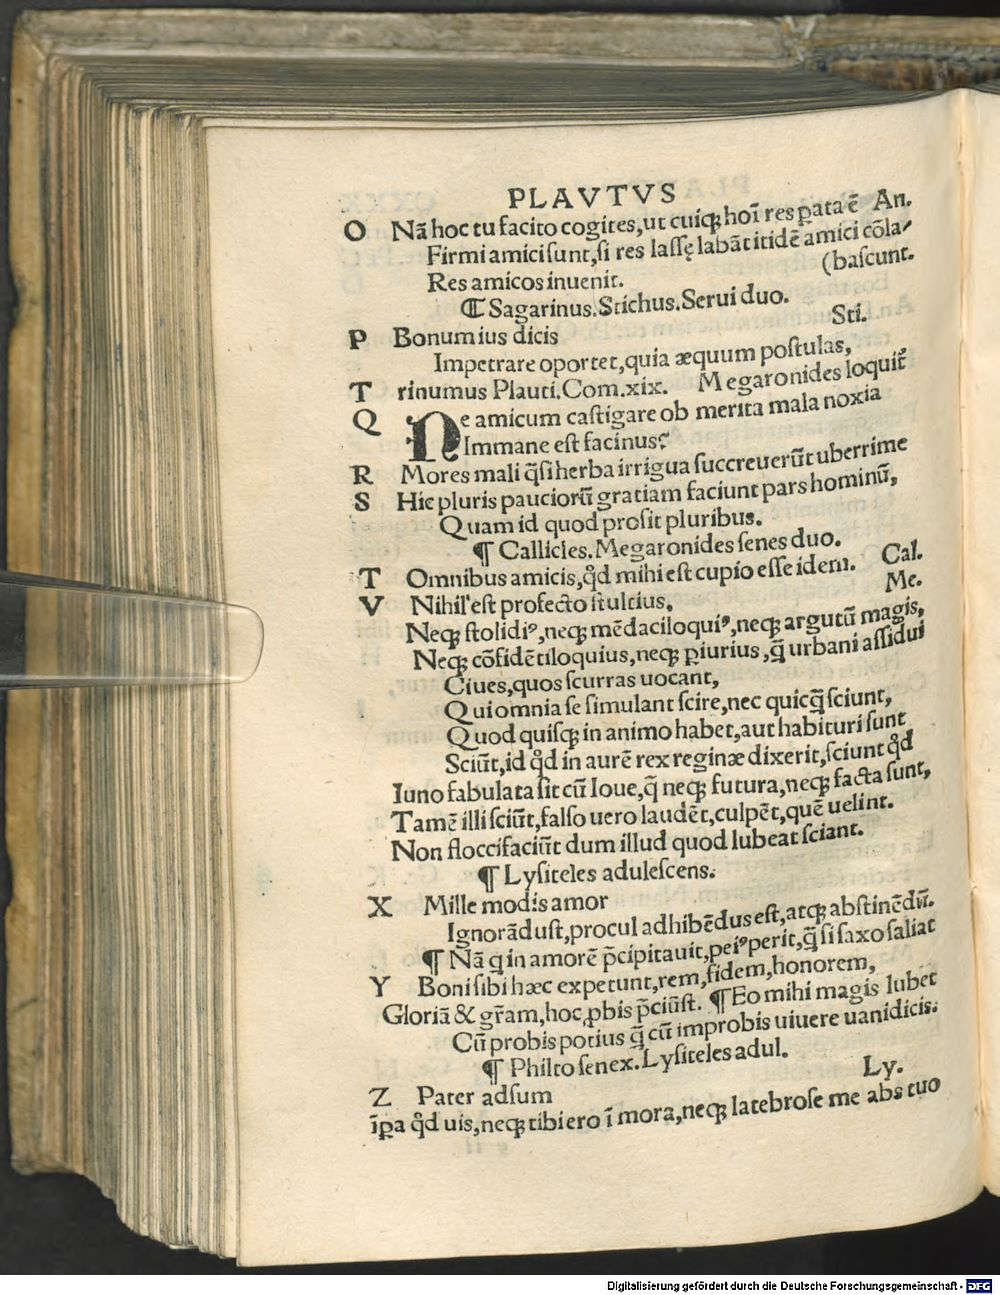 PLAVTVS
O Nā hoc tu facito cogites, ut cuiqꝫ hoī res ꝑata ē An.
Firmi amici sunt, si res lassę labāt itidē amici cōla-
(bascunt.
Res amicos inuenit.
¶ Sagarinus. Stichus. Serui duo.
Sti.
P Bonum ius dicis
Impetrare oportet, quia æquum postulas,
T rinumus Plauti. Com. xix. Megaronides loquit̄
Q Ne amicum castigare ob merita mala noxia
Immane est facinus?
R Mores mali q̄si herba irrigua succreuerūt uberrime
S Hic pluris pauciorū gratiam faciunt pars hominū,
Quam id quod prosit pluribus.
¶ Callicles. Megaronides senes duo.
T Omnibus amicis, qd̉ mihi est cupio esse idem. Cal.
V Nihil est profecto stultius, Me.
Neqꝫ stolidiꝰ, neqꝫ mēdaciloquiꝰ, neqꝫ argutū magis,
Neqꝫ cōfidētiloquius, neqꝫ ꝑiurius, q̄ urbani assidui
Ciues, quos scurras uocant,
Qui omnia se simulant scire, nec quicq̄ sciunt,
Quod quisqꝫ in animo habet, aut habituri sunt
Sciūt, id qd̉ in aurē rex reginæ dixerit, sciunt qd̉
Iuno fabulata sit cū Ioue, q̄ neqꝫ futura, neqꝫ facta sunt,
Tamē illi sciūt, falso uero laudēt, culpēt, quē uelint.
Non flocci faciūt dum illud quod lubeat sciant.
¶ Lysiteles adulescens.
X Mille modis amor
Ignorādust, procul adhibēdus est, atqꝫ abstinēdū.
¶ Nā q in amorē p̄cipitauit, peiꝰ perit, q̄ si saxo saliat
Y Boni sibi hæc expetunt, rem, fidem, honorem,
Gloriā & gr̄am, hoc ꝓbis p̄ciūst. ¶ Eo mihi magis lubet
Cū probis potius q̄ cū improbis uiuere uanidicis.
¶ Philto senex. Lysiteles adul.
Ly.
Z Pater adsum
īꝑa qd̉ uis, neqꝫ tibi ero ī mora, neqꝫ latebrose me abs tuo
Digitalisierung gefördert durch die Deutsche Forschungsgemeinschaft - DFG